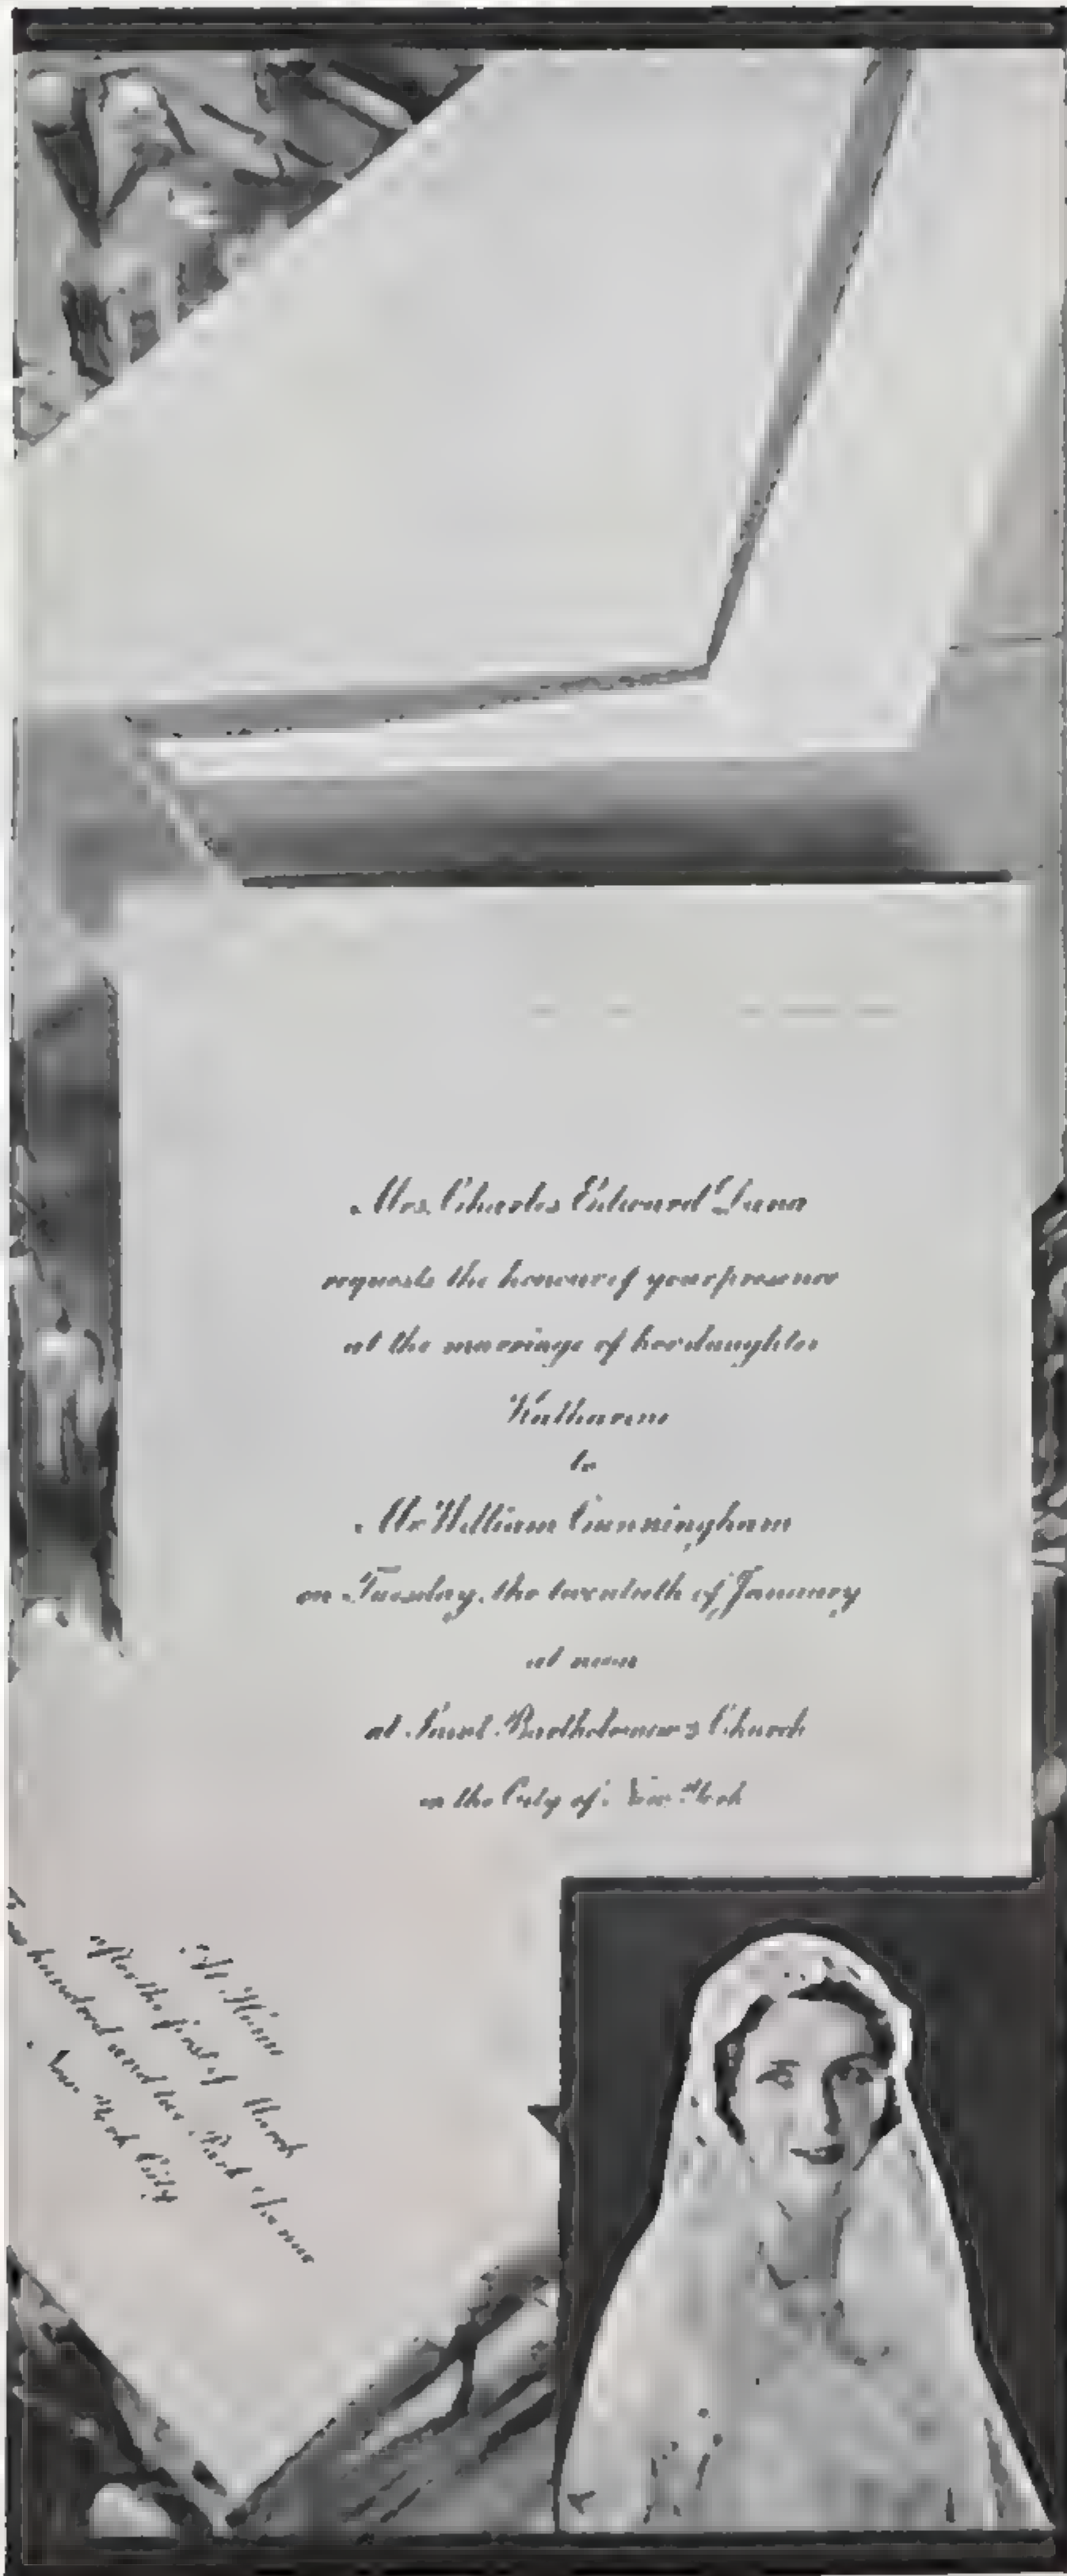 Mrs. Charles Edward Dana
requests the honour of your presence
at the marriage of her daughter
Katharine
to
Mr. William Cunningham
on Tuesday, the twentieth of January
at noon
at Saint Bartholomew's Church
in the City of New York
At Home
after the first of March
Two hundred and ten Park Avenue
New York City